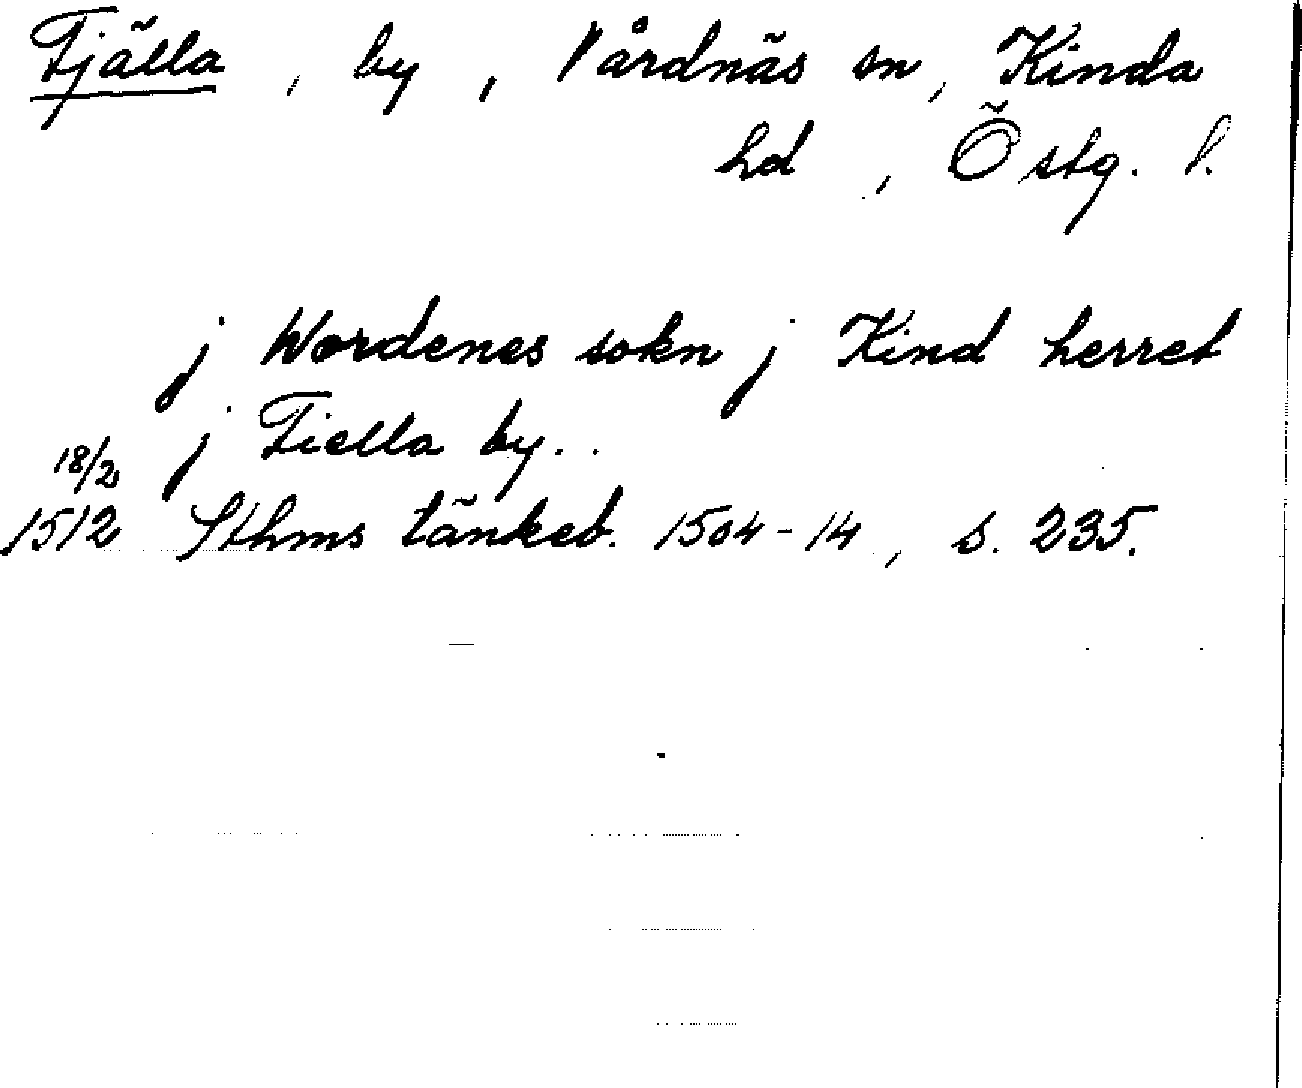 Tjälla, by, Vårdnäs sn, Kinda
hd, Östg. l.
j Wordenes sokn j Kind herret
j Tiella by..
18/2
1512 Sthms tänkeb. 1504-14, s. 235.